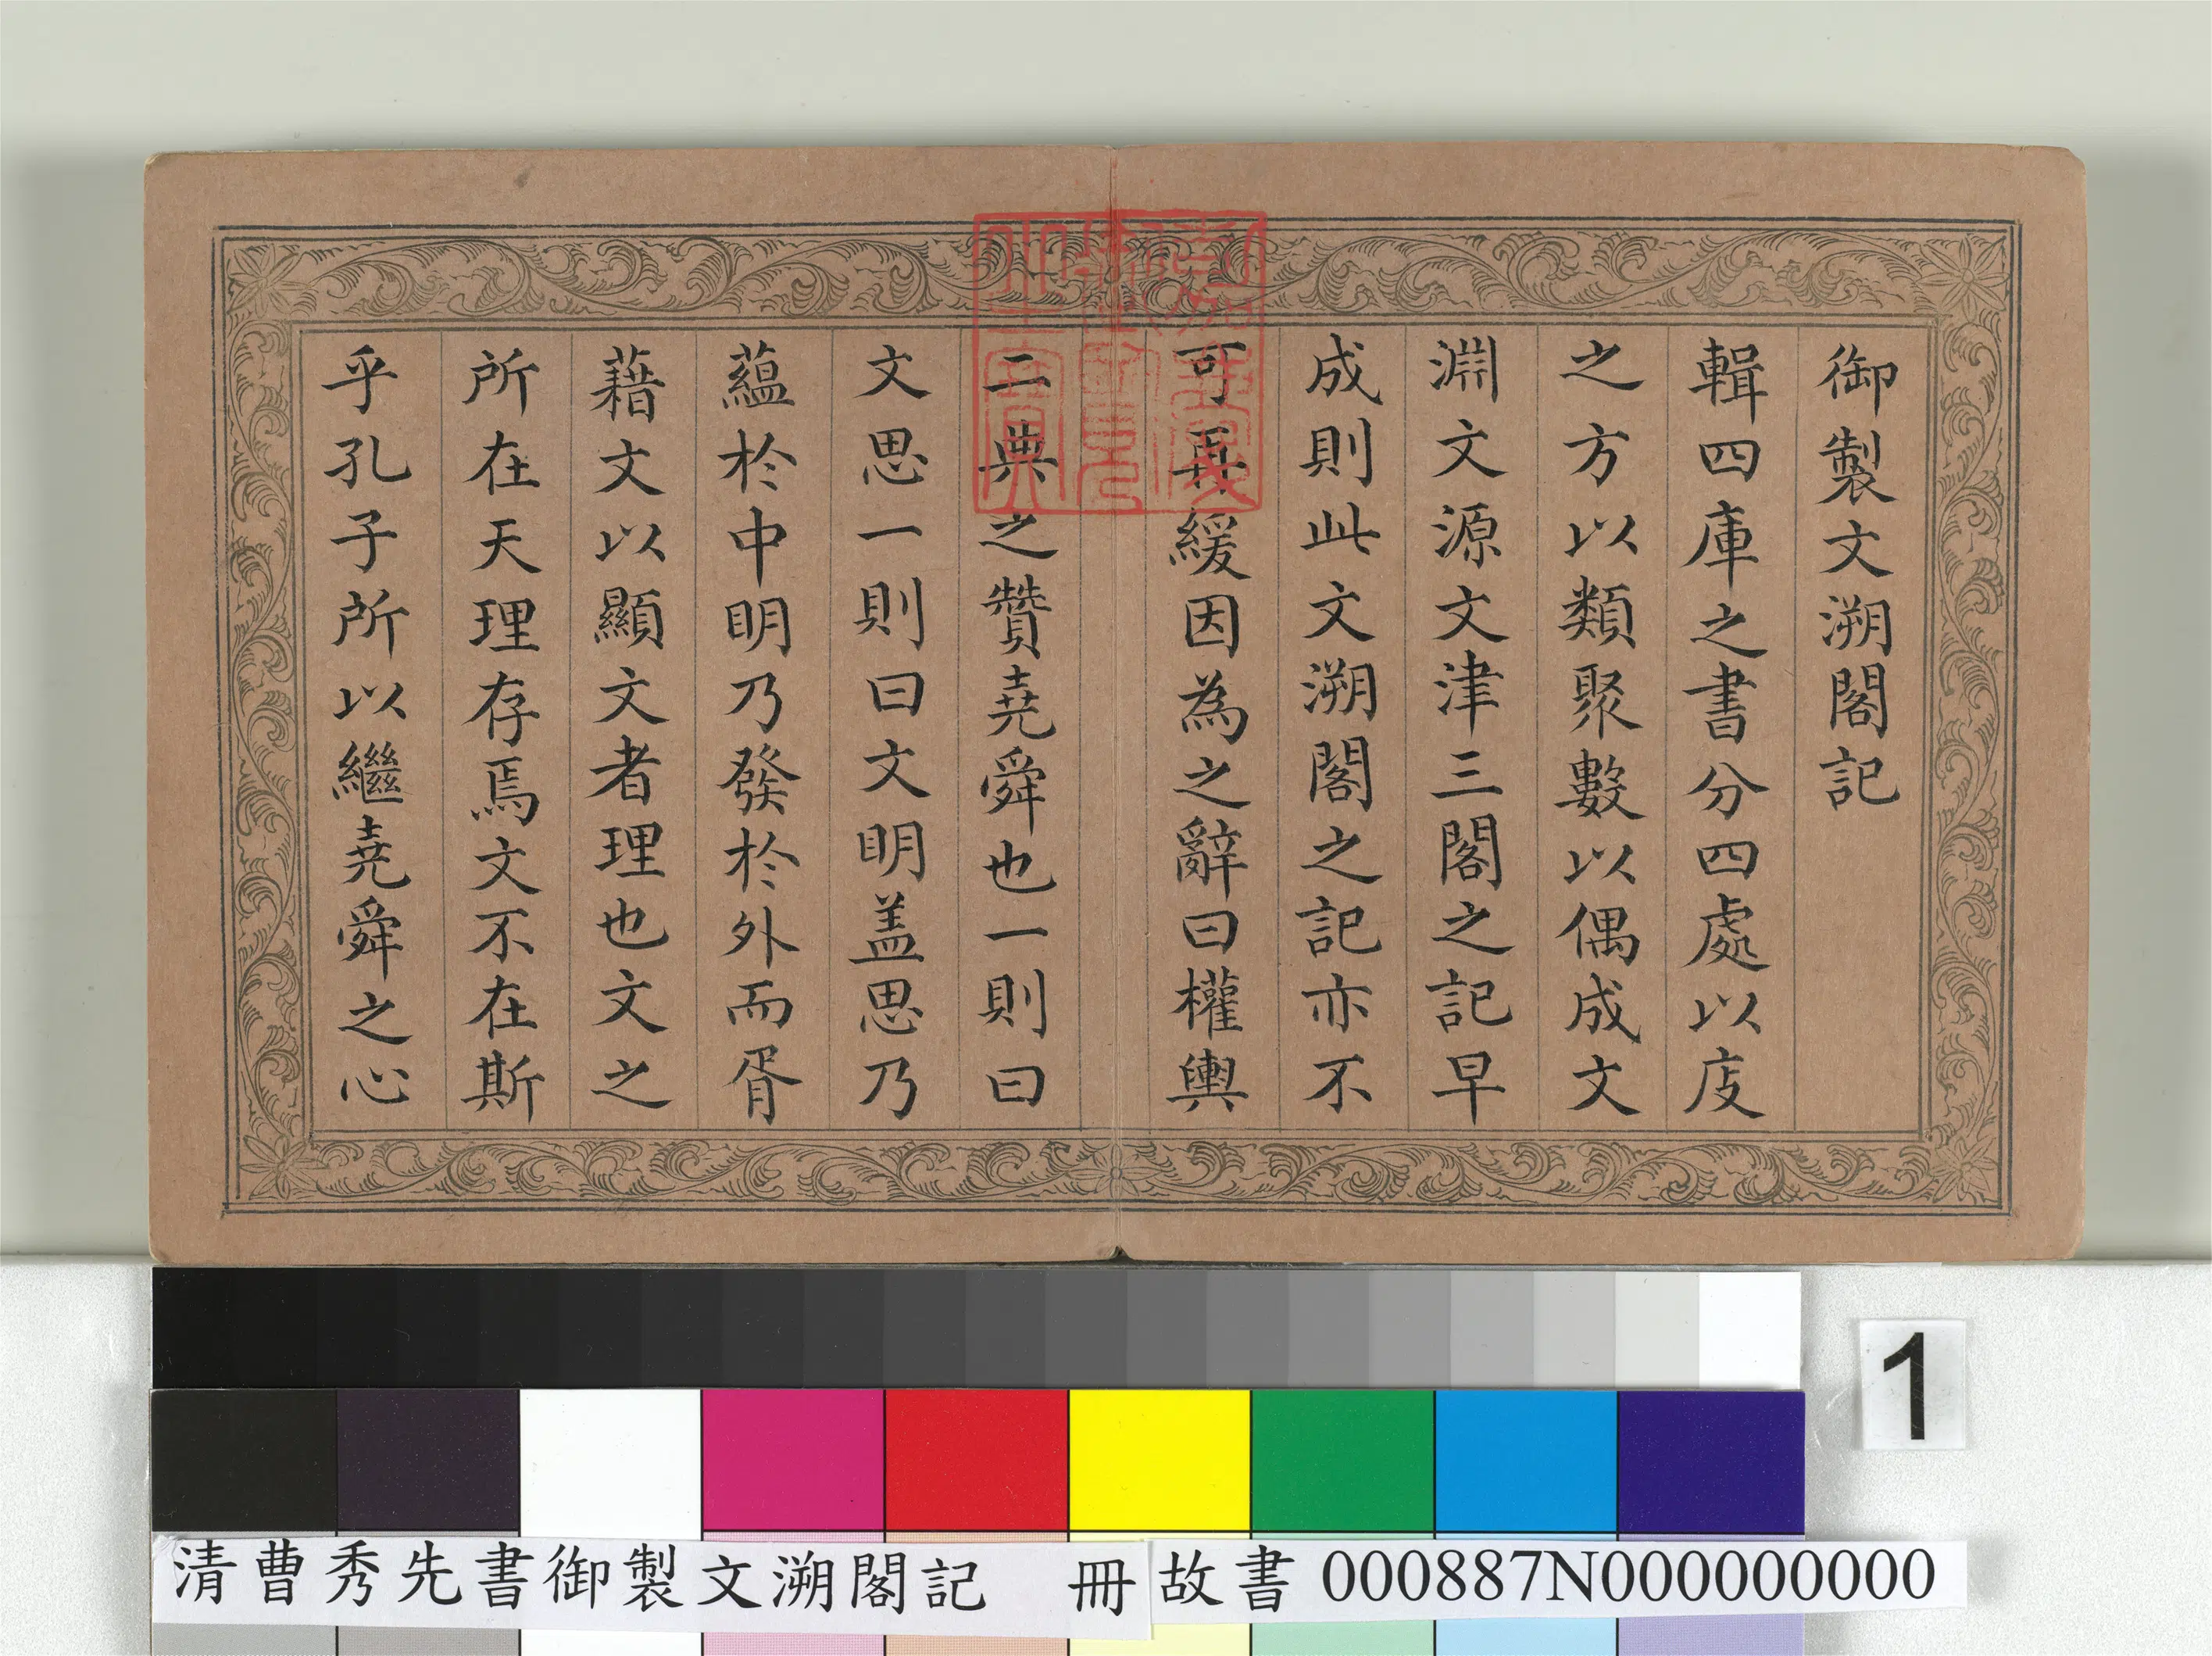 御製文溯閣記
輯四庫之書分四處以庋
之方以類聚數以偶成文
淵文源文津三閣之記早
成則此文溯閣之記亦不
可再緩因為之辭曰權輿
二典之贊堯舜也一則曰
文思一則曰文明盖思乃
蘊於中明乃發於外而胥
藉文以顯文者理也文之
所在天理存焉文不在斯
乎孔子所以繼堯舜之心
嘉慶
御覽
之寶
1
清曹秀先書御製文溯閣記 冊 故書 000887N000000000